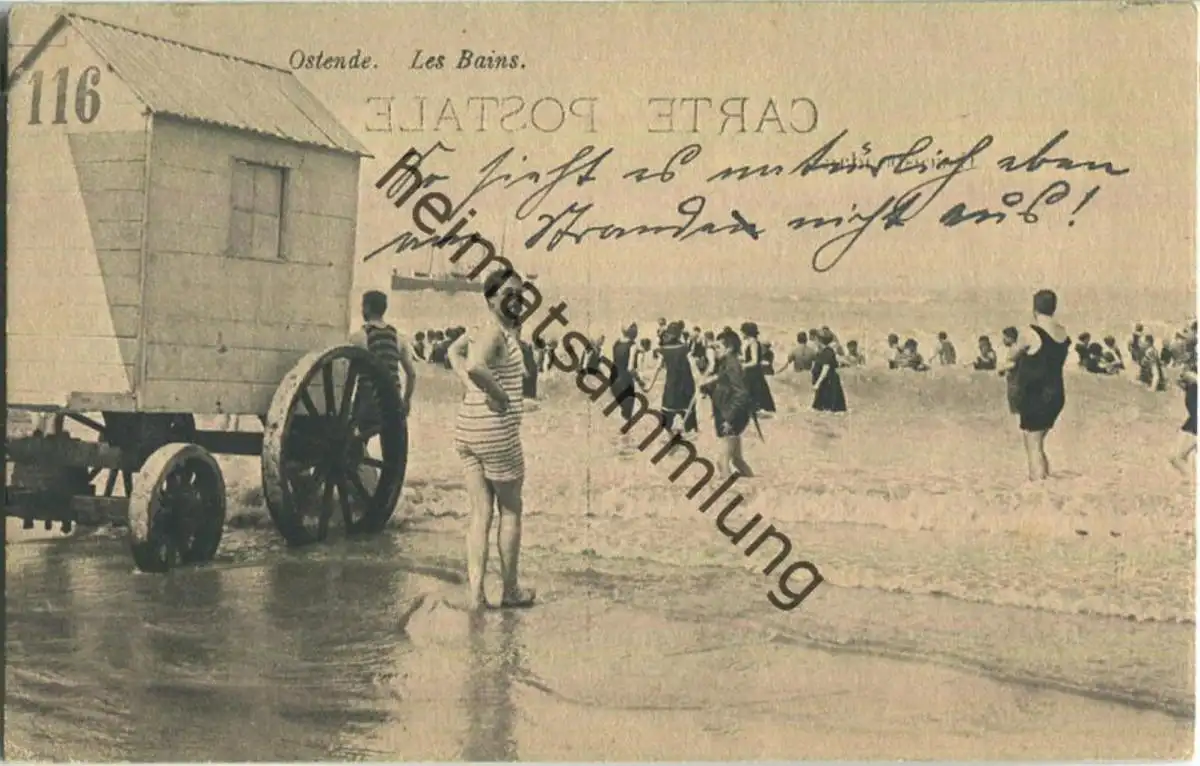 116
Ostende. Les Bains.
CARTE POSTALE
So sieht es natürlich eben
am Stranden nicht aus!
heimatsammlung